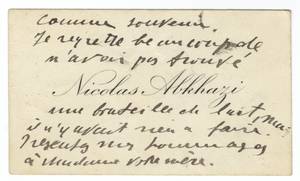 comme souvenir.
Je regrette beaucoup de
n'avoir pas trouvé
Nicolas Abkhazi
une bouteille de lait, mais
il n'y avait rien a faire.
Présentez mes hommages
à Madame votre mère.